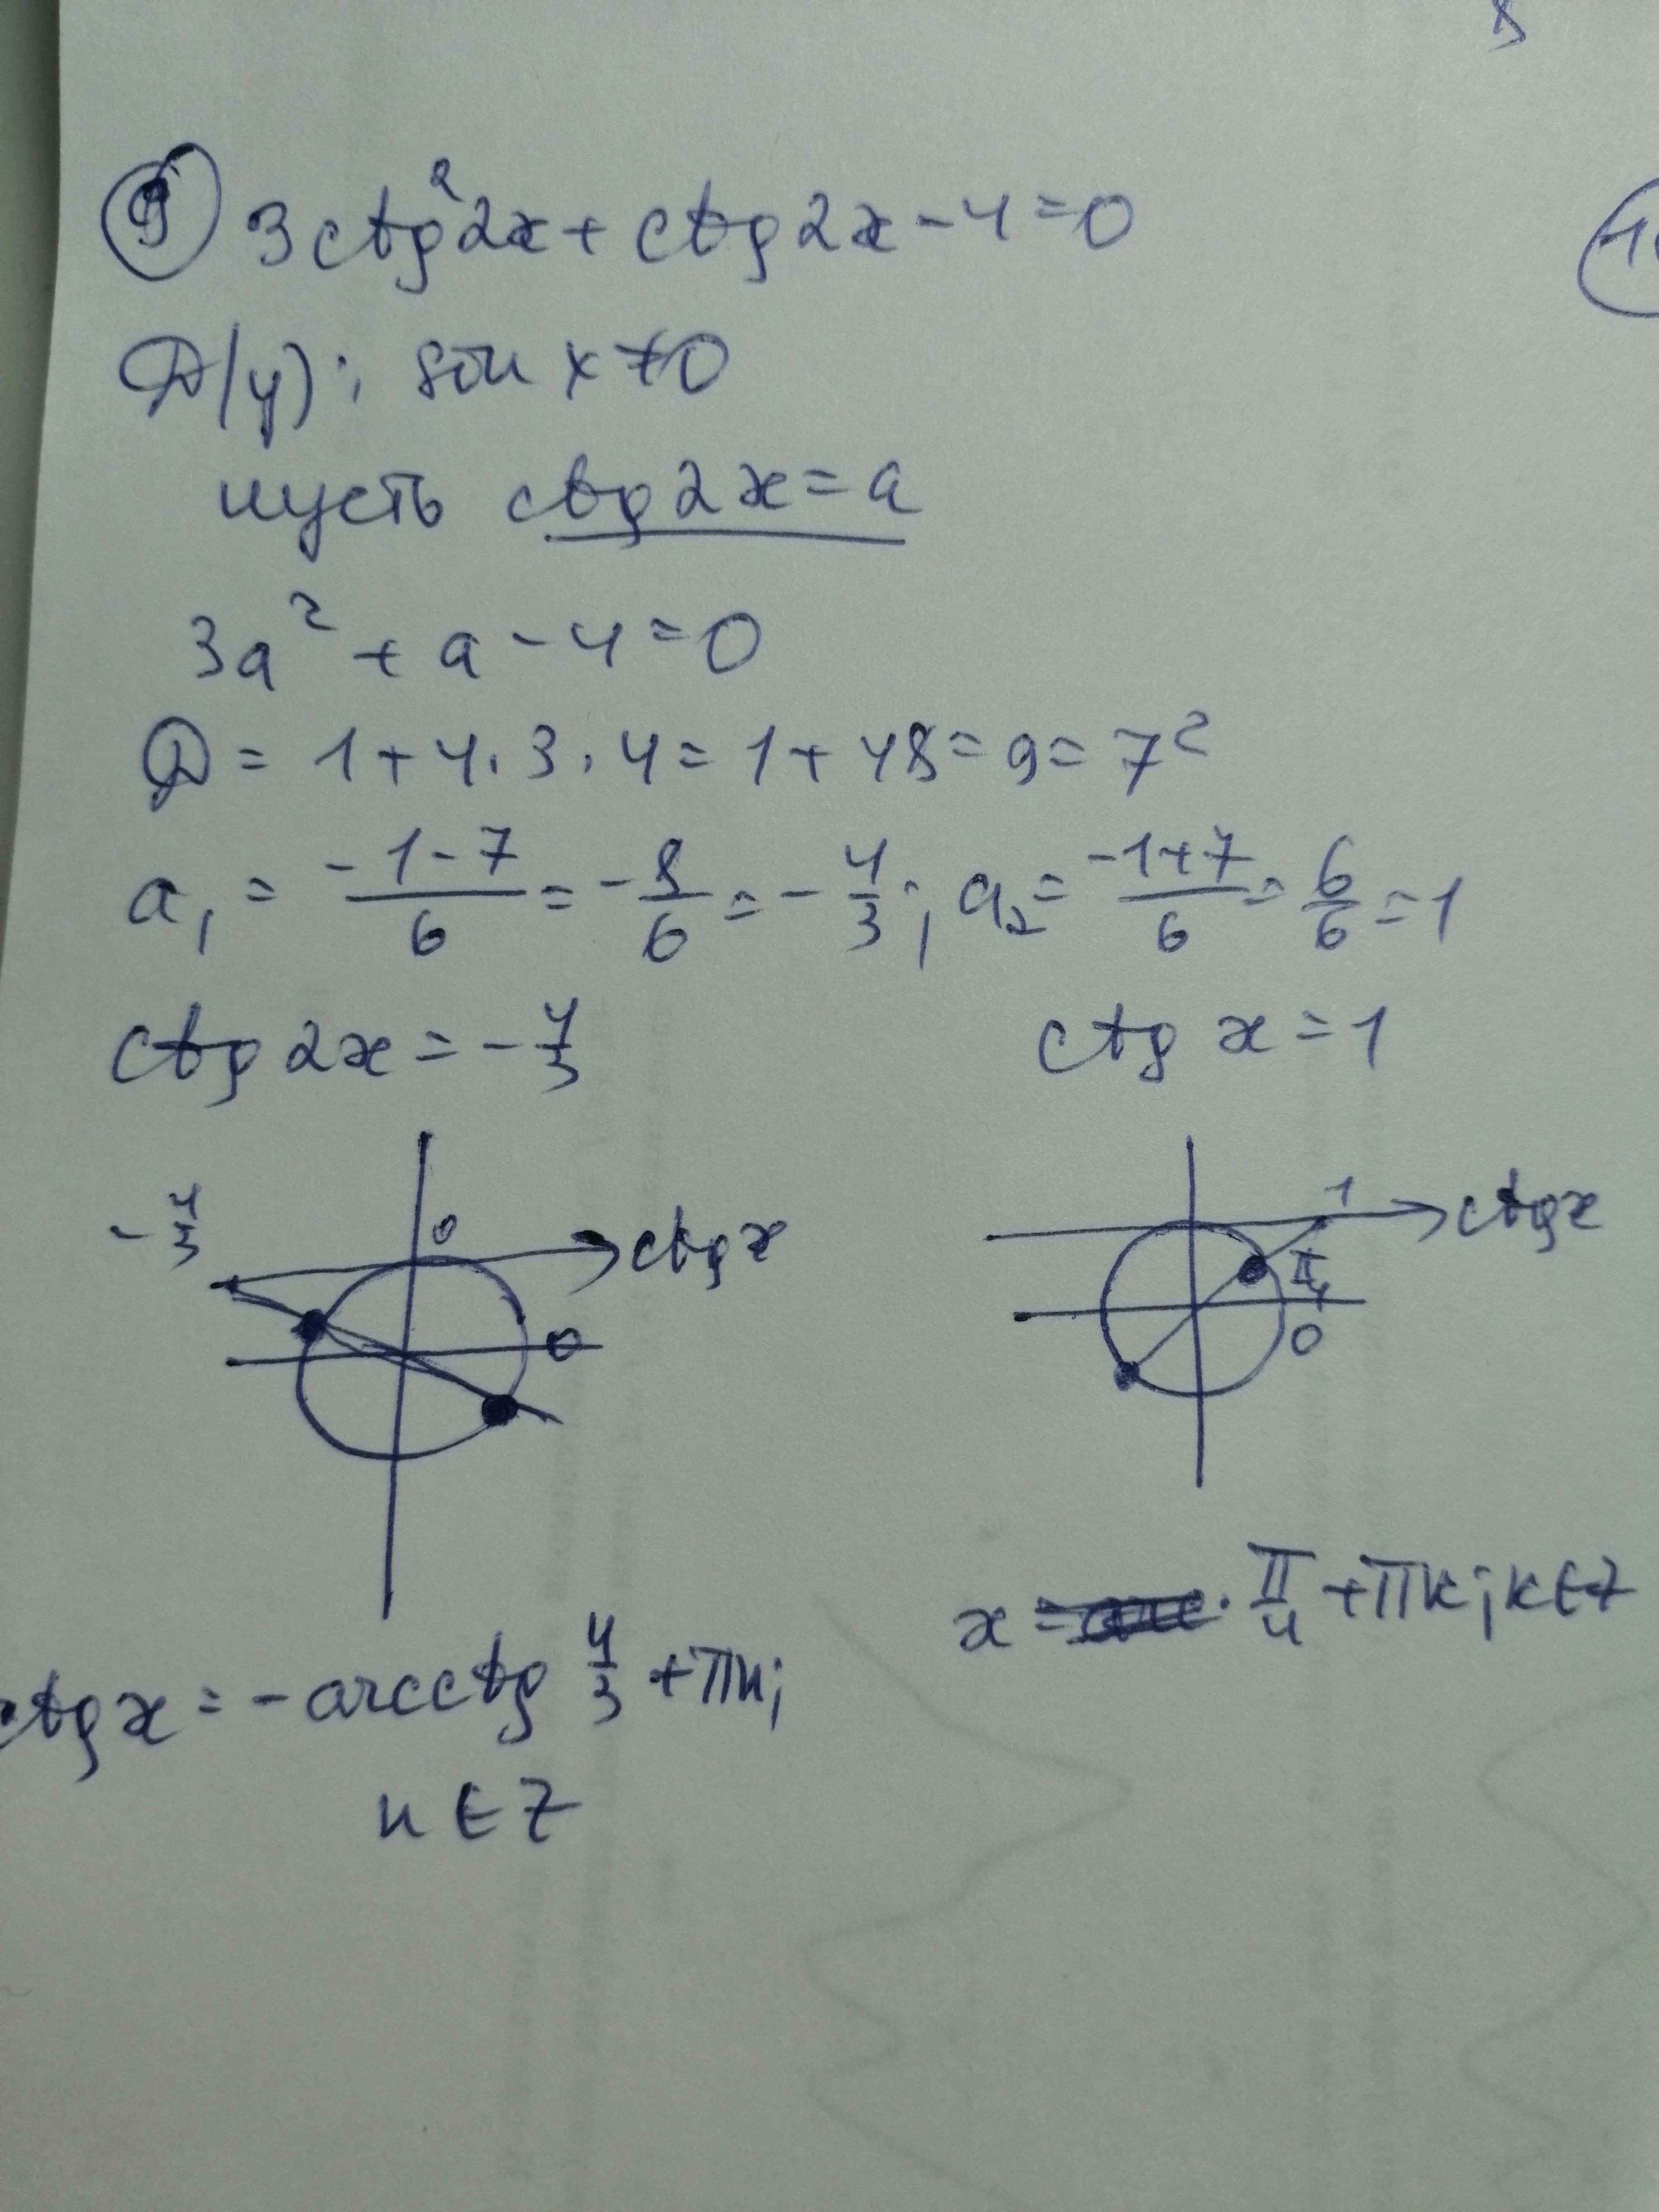 9 3ctg²2x + ctg2x - 4 = 0
D(y): sin x ≠ 0
пусть ctg2x = a
3a² + a - 4 = 0
D = 1 + 4 · 3 · 4 = 1 + 48 = 9 = 7²
a₁ = (-1-7)/6 = -8/6 = -4/3; a₂ = (-1+7)/6 = 6/6 = 1
ctg2x = -4/3
ctg x = 1
-4/3 0 ctgx
0
1 ctgx
π/4
0
x = π/4 + πk; k ∈ Z
ctgx = -arcctg 4/3 + πn;
n ∈ Z